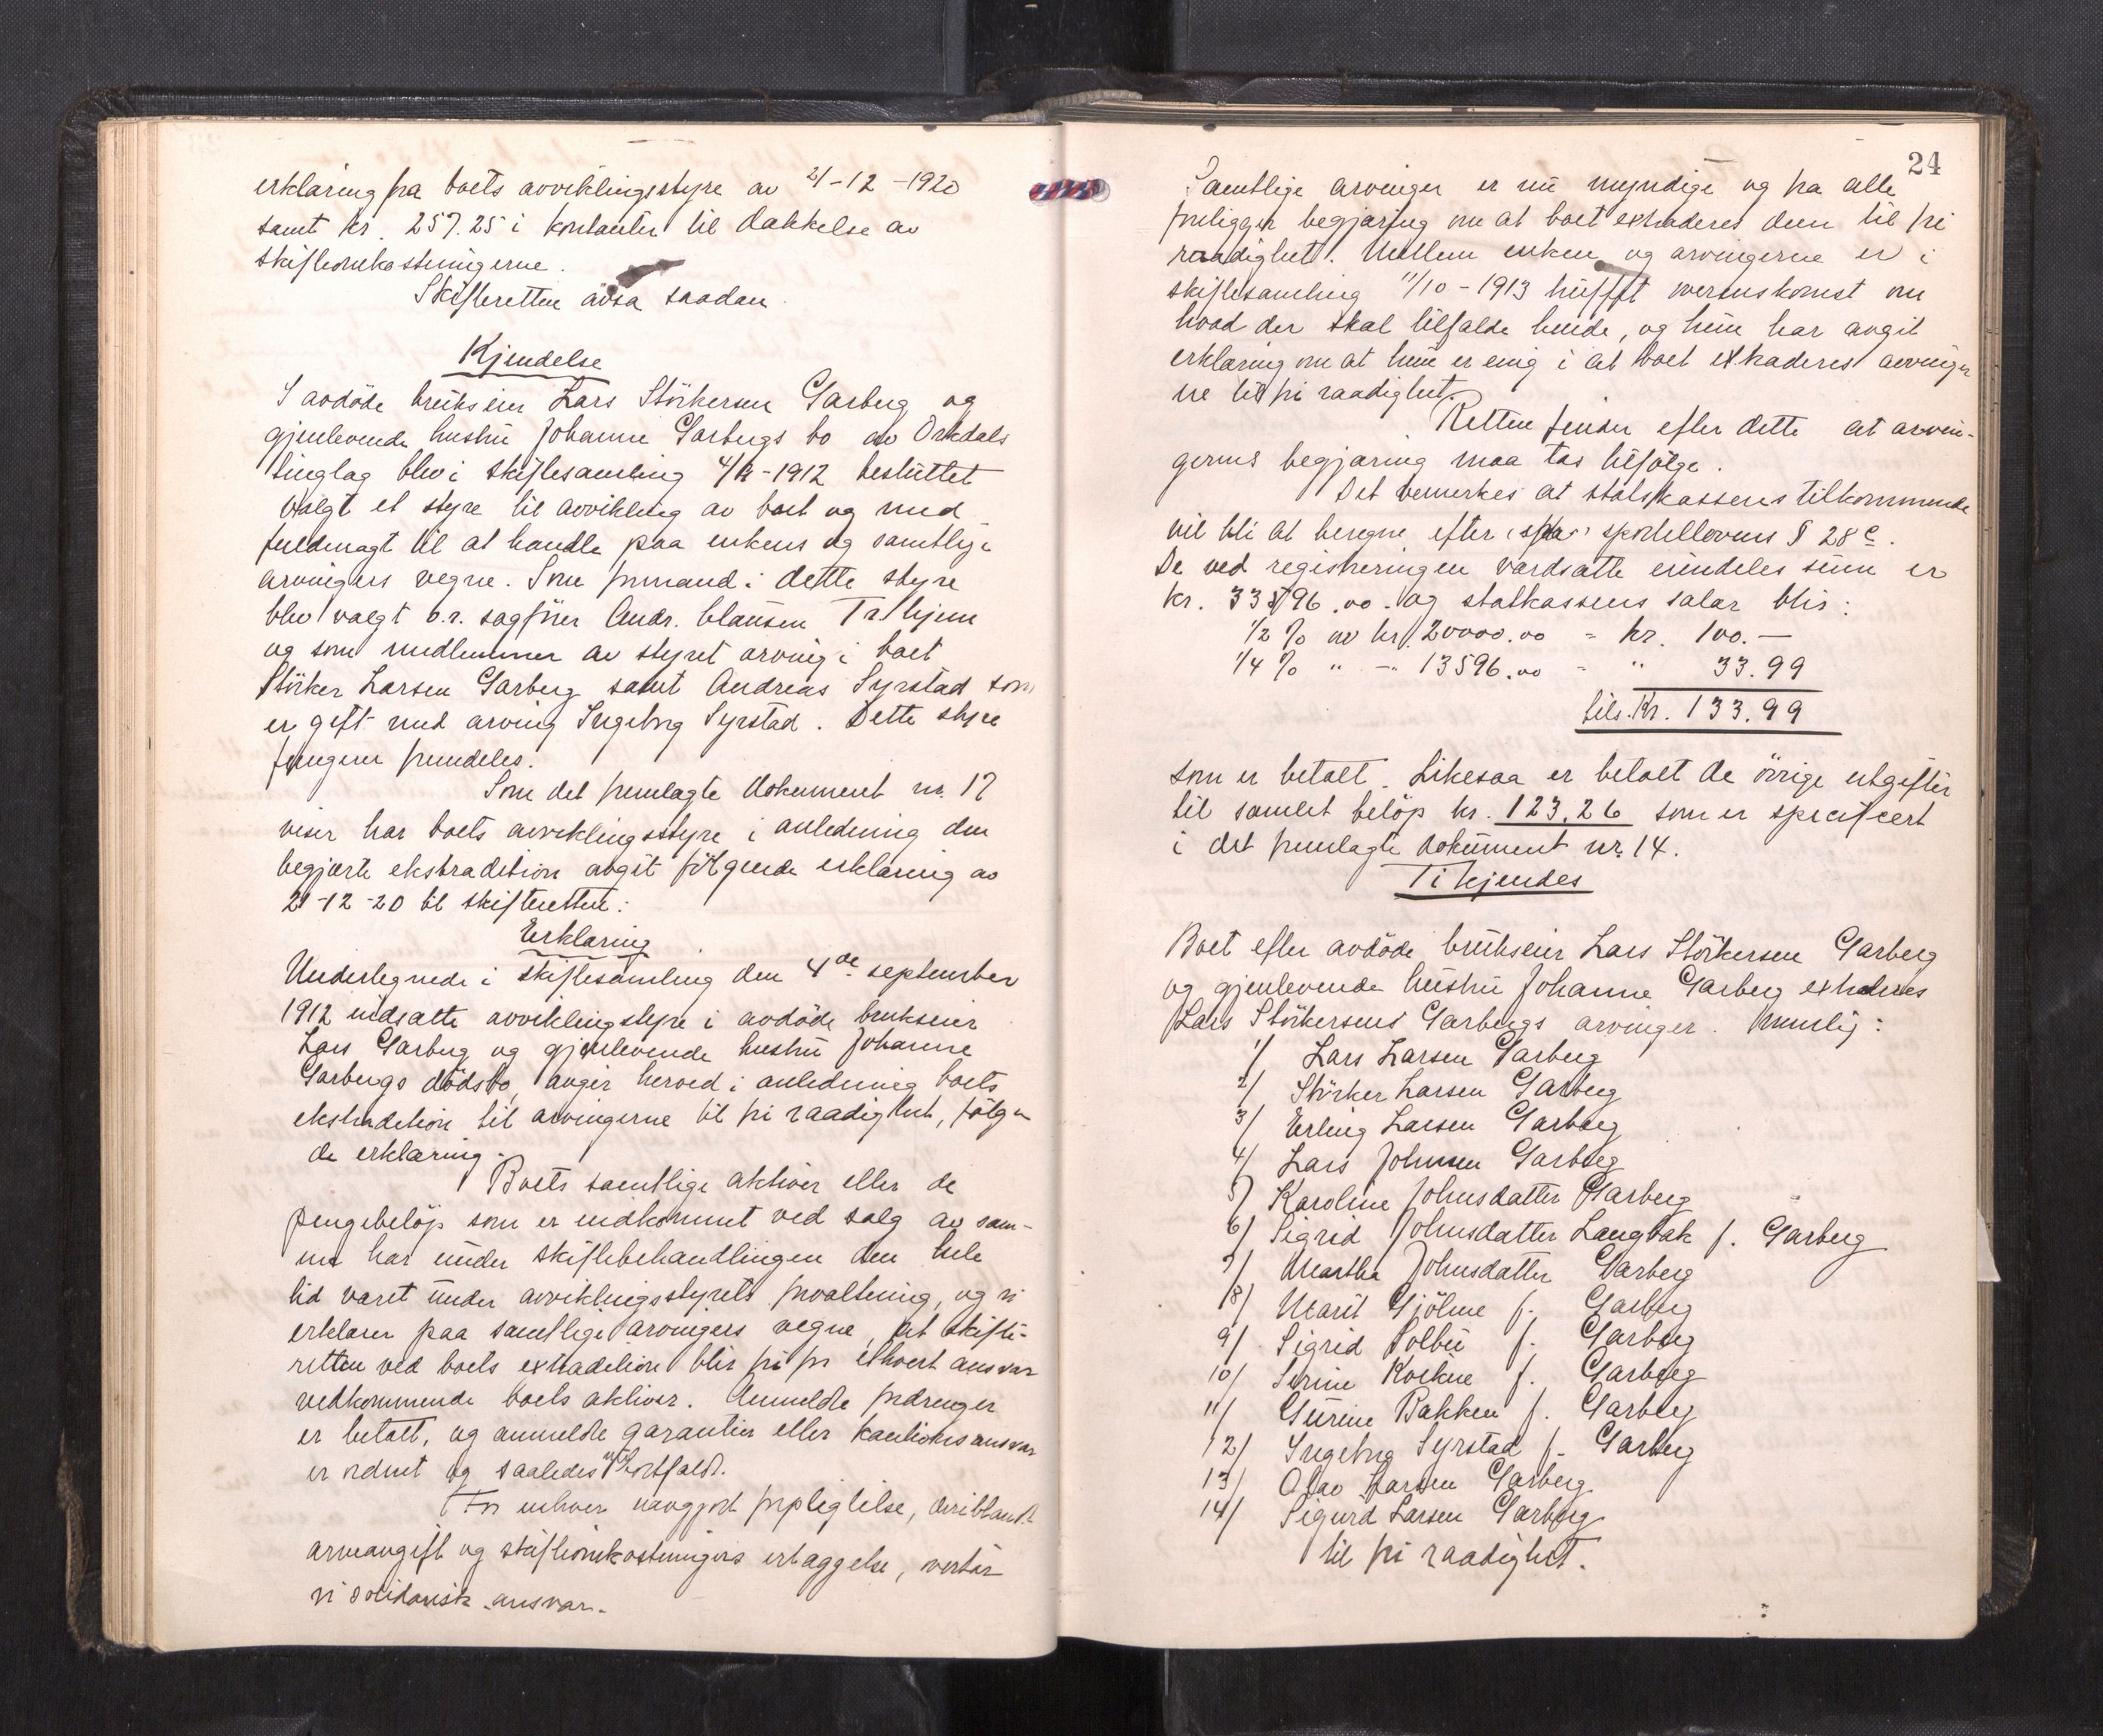 erklæring fra boets avviklingsstyre av 21-12-1920
samt kr. 257.25 i kontanter til dækkelse av
skifteomkostningerne.
Skifteretten avsa saadan
Kjendelse
I avdöde brukseier Lars Störkersen Garberg og
gjenlevende hustru Johanne Garbergs bo av Orkdals
tinglag blev i skiftesamling 4/9-1912 besluttet
valgt et styre til avvikling av boet og med
fuldmagt til at handle paa enkens og samtlige
arvingers vegne. Som formand i dette styre
blev valgt o.r. sagförer Andr. Clausen Tr.hjem
og som medlemmer av styret arving i boet
Störker Larsen Garberg samt Andreas Syrstad som
er gift med arving Ingeborg Syrstad. Dette styre
fungerer fremdeles.
Som det fremlagte dokument nr. 17
viser har boets avviklingsstyre i anledning den
begjærte ekstradition avgit fölgende erklæring av
21-12-20 til skifteretten:
Erklæring
Undertegnede i skiftesamling den 4de september
1912 indsatte avviklingstyre i avdöde brukseier
Lars Garberg og gjenlevende hustru Johanne
Garbergs dödsbo, avgir herved i anledning boets
ekstradition til arvingerne til fri raadighet, fölgen
de erklæring.
Boets samtlige aktiver eller de
pengebelöp som er indkommet ved salg av sam-
me har under skiftebehandlingen den hele
tid været under avviklingsstyrets forvaltning, og vi
erklærer paa samtlige arvingers vegne, at skifte-
retten ved boets extradition blir fri for ethvert ansvar
vedkommende boets aktiver. Anmeldte fordringer
er betalt, og anmeldte garantier eller kautionsansvar
er ordnet og saaledes bortfaldt.
For enhver uavgjort forpligtelse, deriblandt
arveavgift og skifteomkostningers erlæggelse, overtar
vi solidarisk ansvar.
24
Samtlige arvinger er nu myndige og fra alle
foreligger begjæring om at boet extraderes dem til fri
raadighet. Mellem enken og arvingerne er i
skiftesamling 11/10-1913 truffet overenskomst om
hvad der skal tilfalde hende, og hun har avgit
erklæring om at hun er enig i at boet extraderes arvinger
ne til fri raadighet.
Retten finder efter dette at arvin-
gernes begjæring maa tas tilfölge.
Det bemerkes at statskassens tilkommende
vil bli at beregne efter sportellovens § 28 c.
De ved registreringen værdsatte eiendeles sum er
kr. 33596.00 og statkassens salær blir:
1/2 % av kr. 20000.00 = kr. 100.—
1/4 % " —" 13596.00 = " 33.99
tils. Kr. 133.99
som er betalt. Likesaa er betalt de övrige utgifter
til samlet belöp kr. 123.26 som er specificert
i det fremlagte dokument nr. 14.
Ti kjendes
Boet efter avdöde brukseier Lars Störkersen Garberg
og gjenlevende hustru Johanne Garberg extraderes
Lars Störkersens Garbergs arvinger. nemlig:
1/ Lars Larsen Garberg
2/ Störker Larsen Garberg
3/ Erling Larsen Garberg
4/ Lars Johnsen Garberg
5/ Karoline Johnsdatter Garberg
6/ Sigrid Johnsdatter Langbak f. Garberg
7/ Martha Johnsdatter Garberg
8/ Marit Gjölme f. Garberg
9/ Sigrid Solbu f. Garberg
10/ Serine Kvikne f. Garberg
11/ Gurine Bakken f. Garberg
12/ Ingeborg Syrstad f. Garberg
13/ Olav Larsen Garberg
14/ Sigurd Larsen Garberg
til fri raadighet.